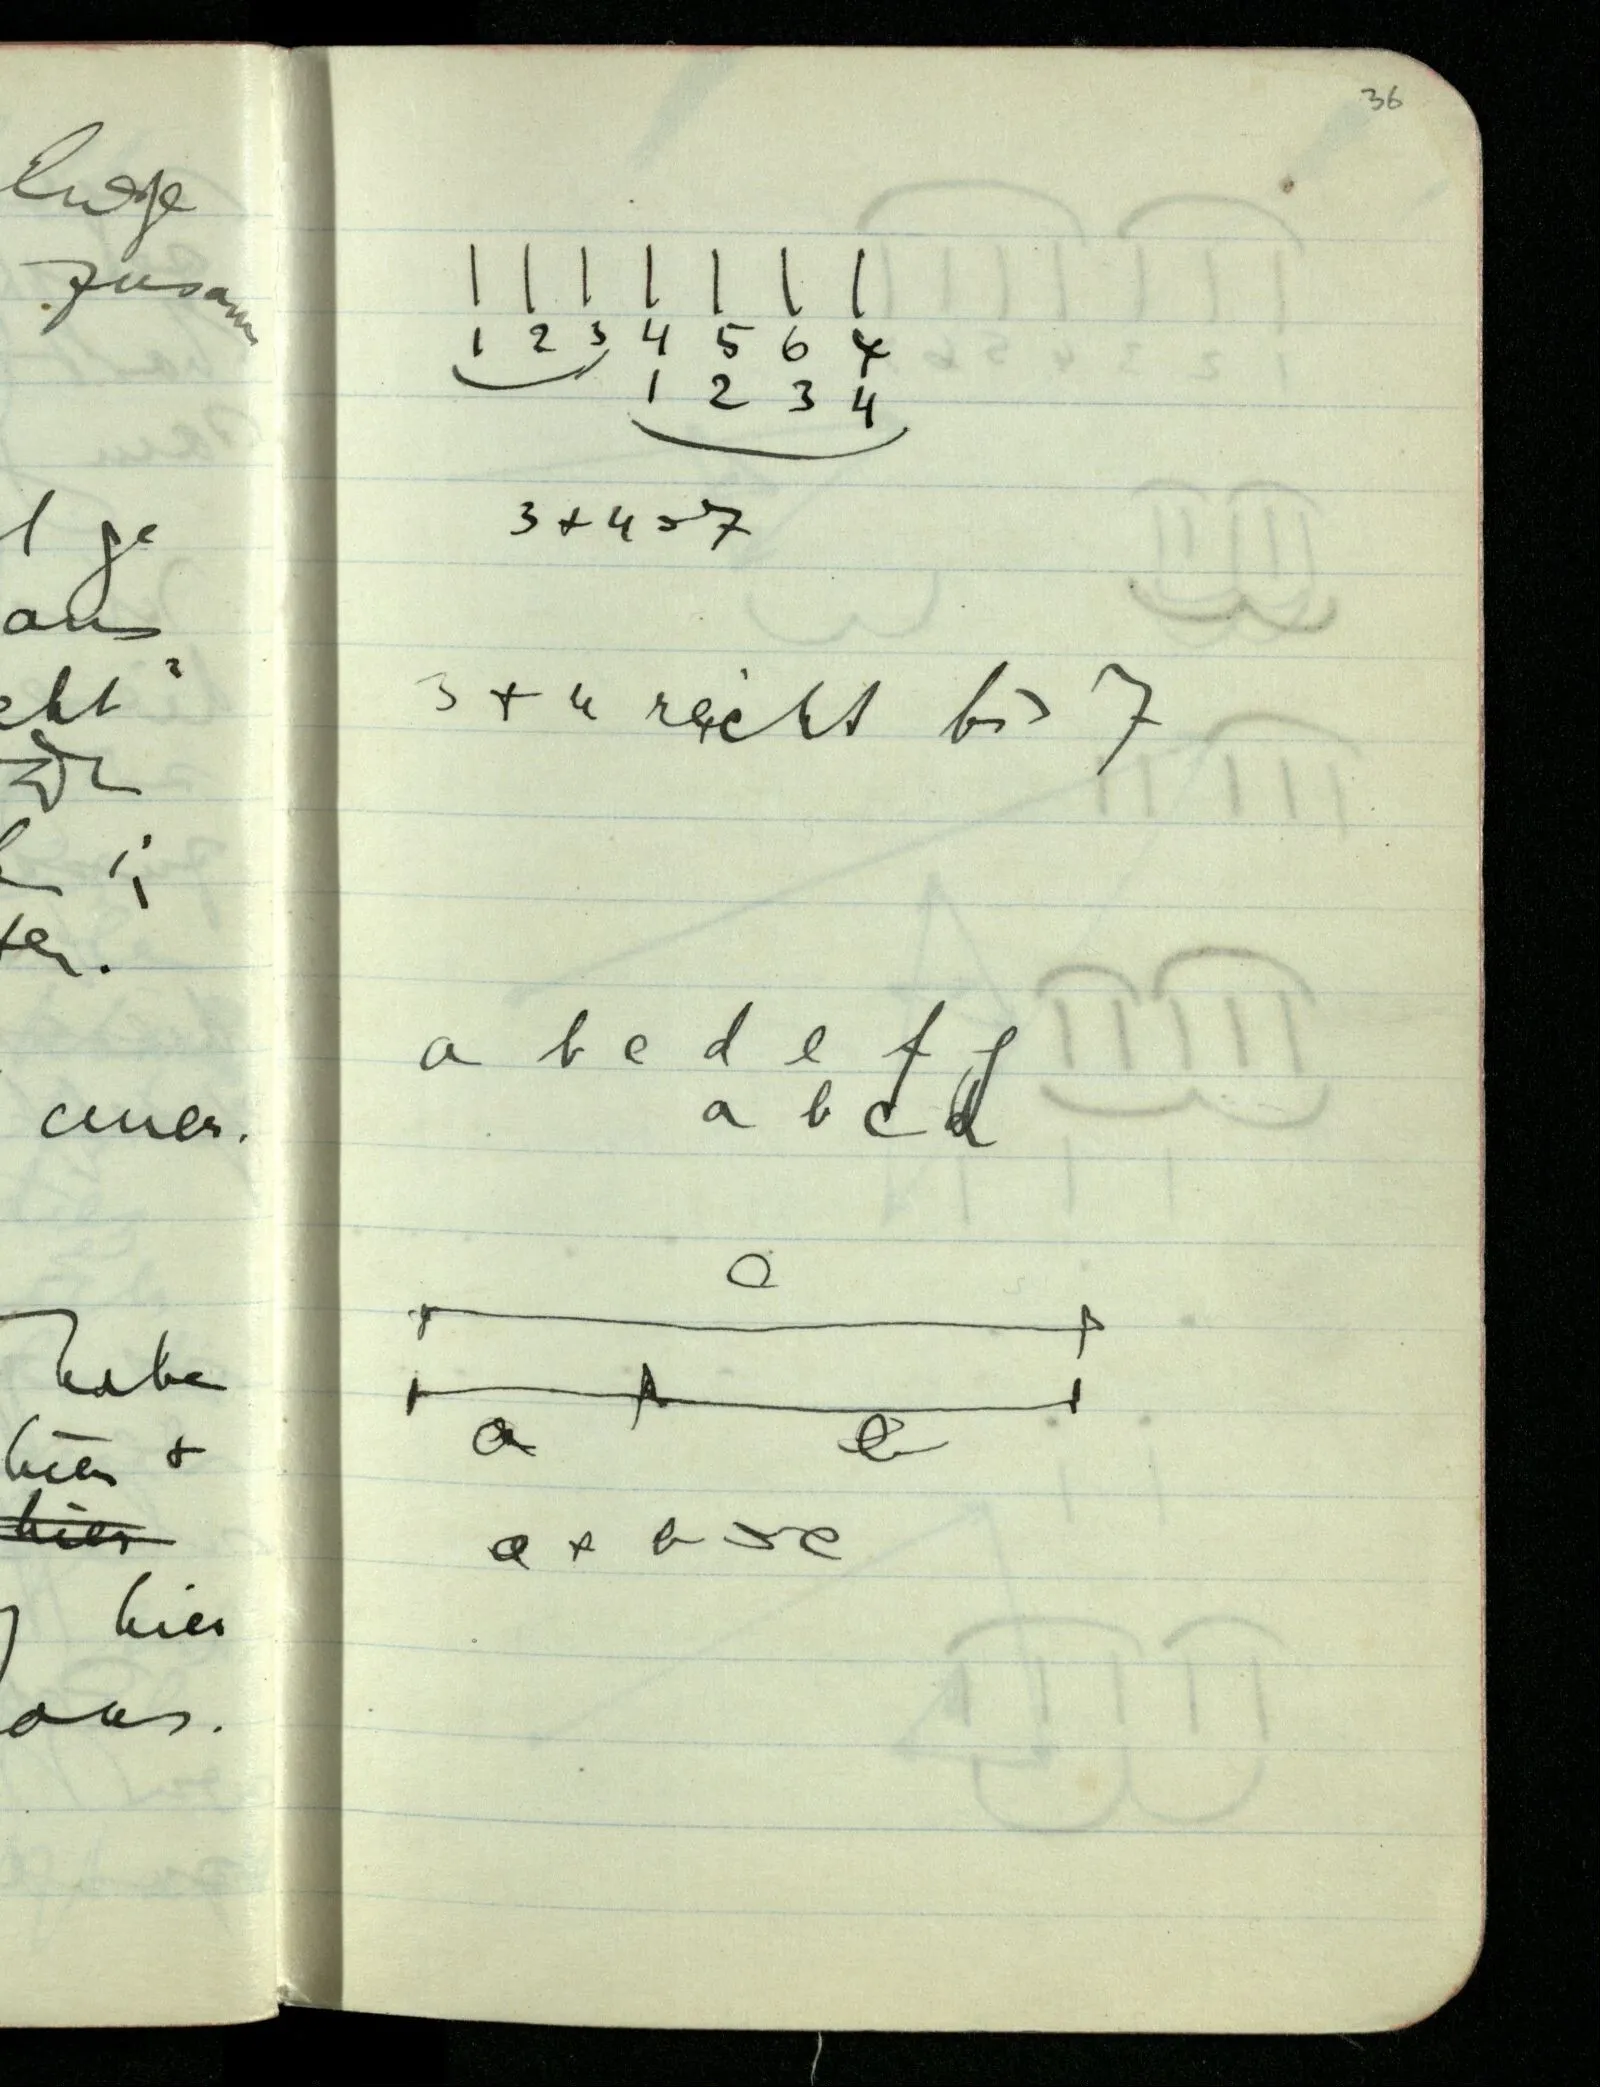 zusam
l ge
aus
ter.
einer.
habe
hier +
hier
hier
aus.
36
| | | | | | |
1 2 3 4 5 6 7
1 2 3 4
3 + 4 = 7
3 + 4 reicht bis 7
a b c d e f g
a b c d
c
a b
a + b = c